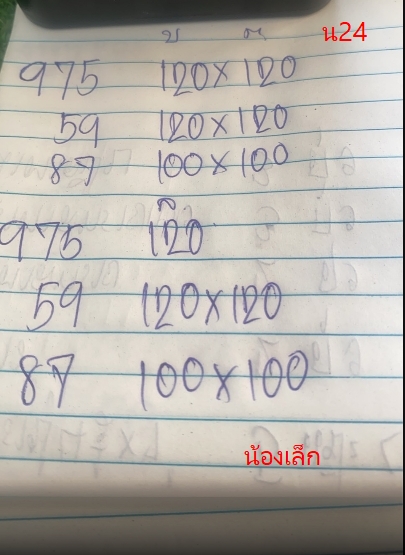 น24
บ ต
975 120x120
59 120x120
87 100x100
975 120
59 120x120
87 100x100
น้องเล็ก